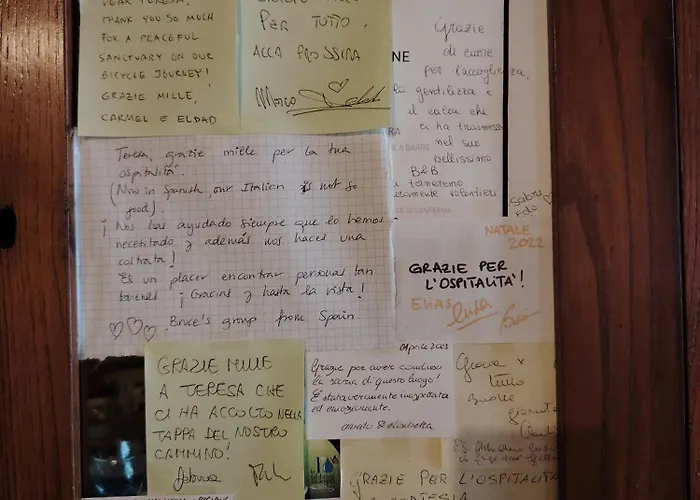 DEAR TERESA,
THANK YOU SO MUCH
FOR A PEACEFUL
SANCTUARY ON OUR
BICYCLE JOURNEY!
GRAZIE MILLE,
CARMEL E ELDAD
PER TUTTO.
ALLA PROSSIMA
Marco
NE
Grazie
di cuore
per l'accoglienza,
la gentilezza e
il calore che
ci ha trasmesso
nel suo
bellissimo
B&B
torneremo
volentieri
Teresa, grazie mille per la tua
ospitalità.
(Now in Spanish, our Italian is not so
good).
¡Nos has ayudado siempre que lo hemos
necesitado y además nos haces una
!
Es un placer encontrar personas tan
¡Gracias y hasta la vista!
Bruce's group from Spain
NATALE
2022
GRAZIE PER
L'OSPITALITÀ!
ELIAS
GRAZIE MILLE
A TERESA CHE
CI HA ACCOLTO NELLA
TAPPA DEL NOSTRO
CAMMINO!
Grazie per aver condiviso
la storia di questo luogo!
È stata veramente inaspettata
ed emozionante.
Grazie x
tutto
GRAZIE PER L'OSPITALITÀ